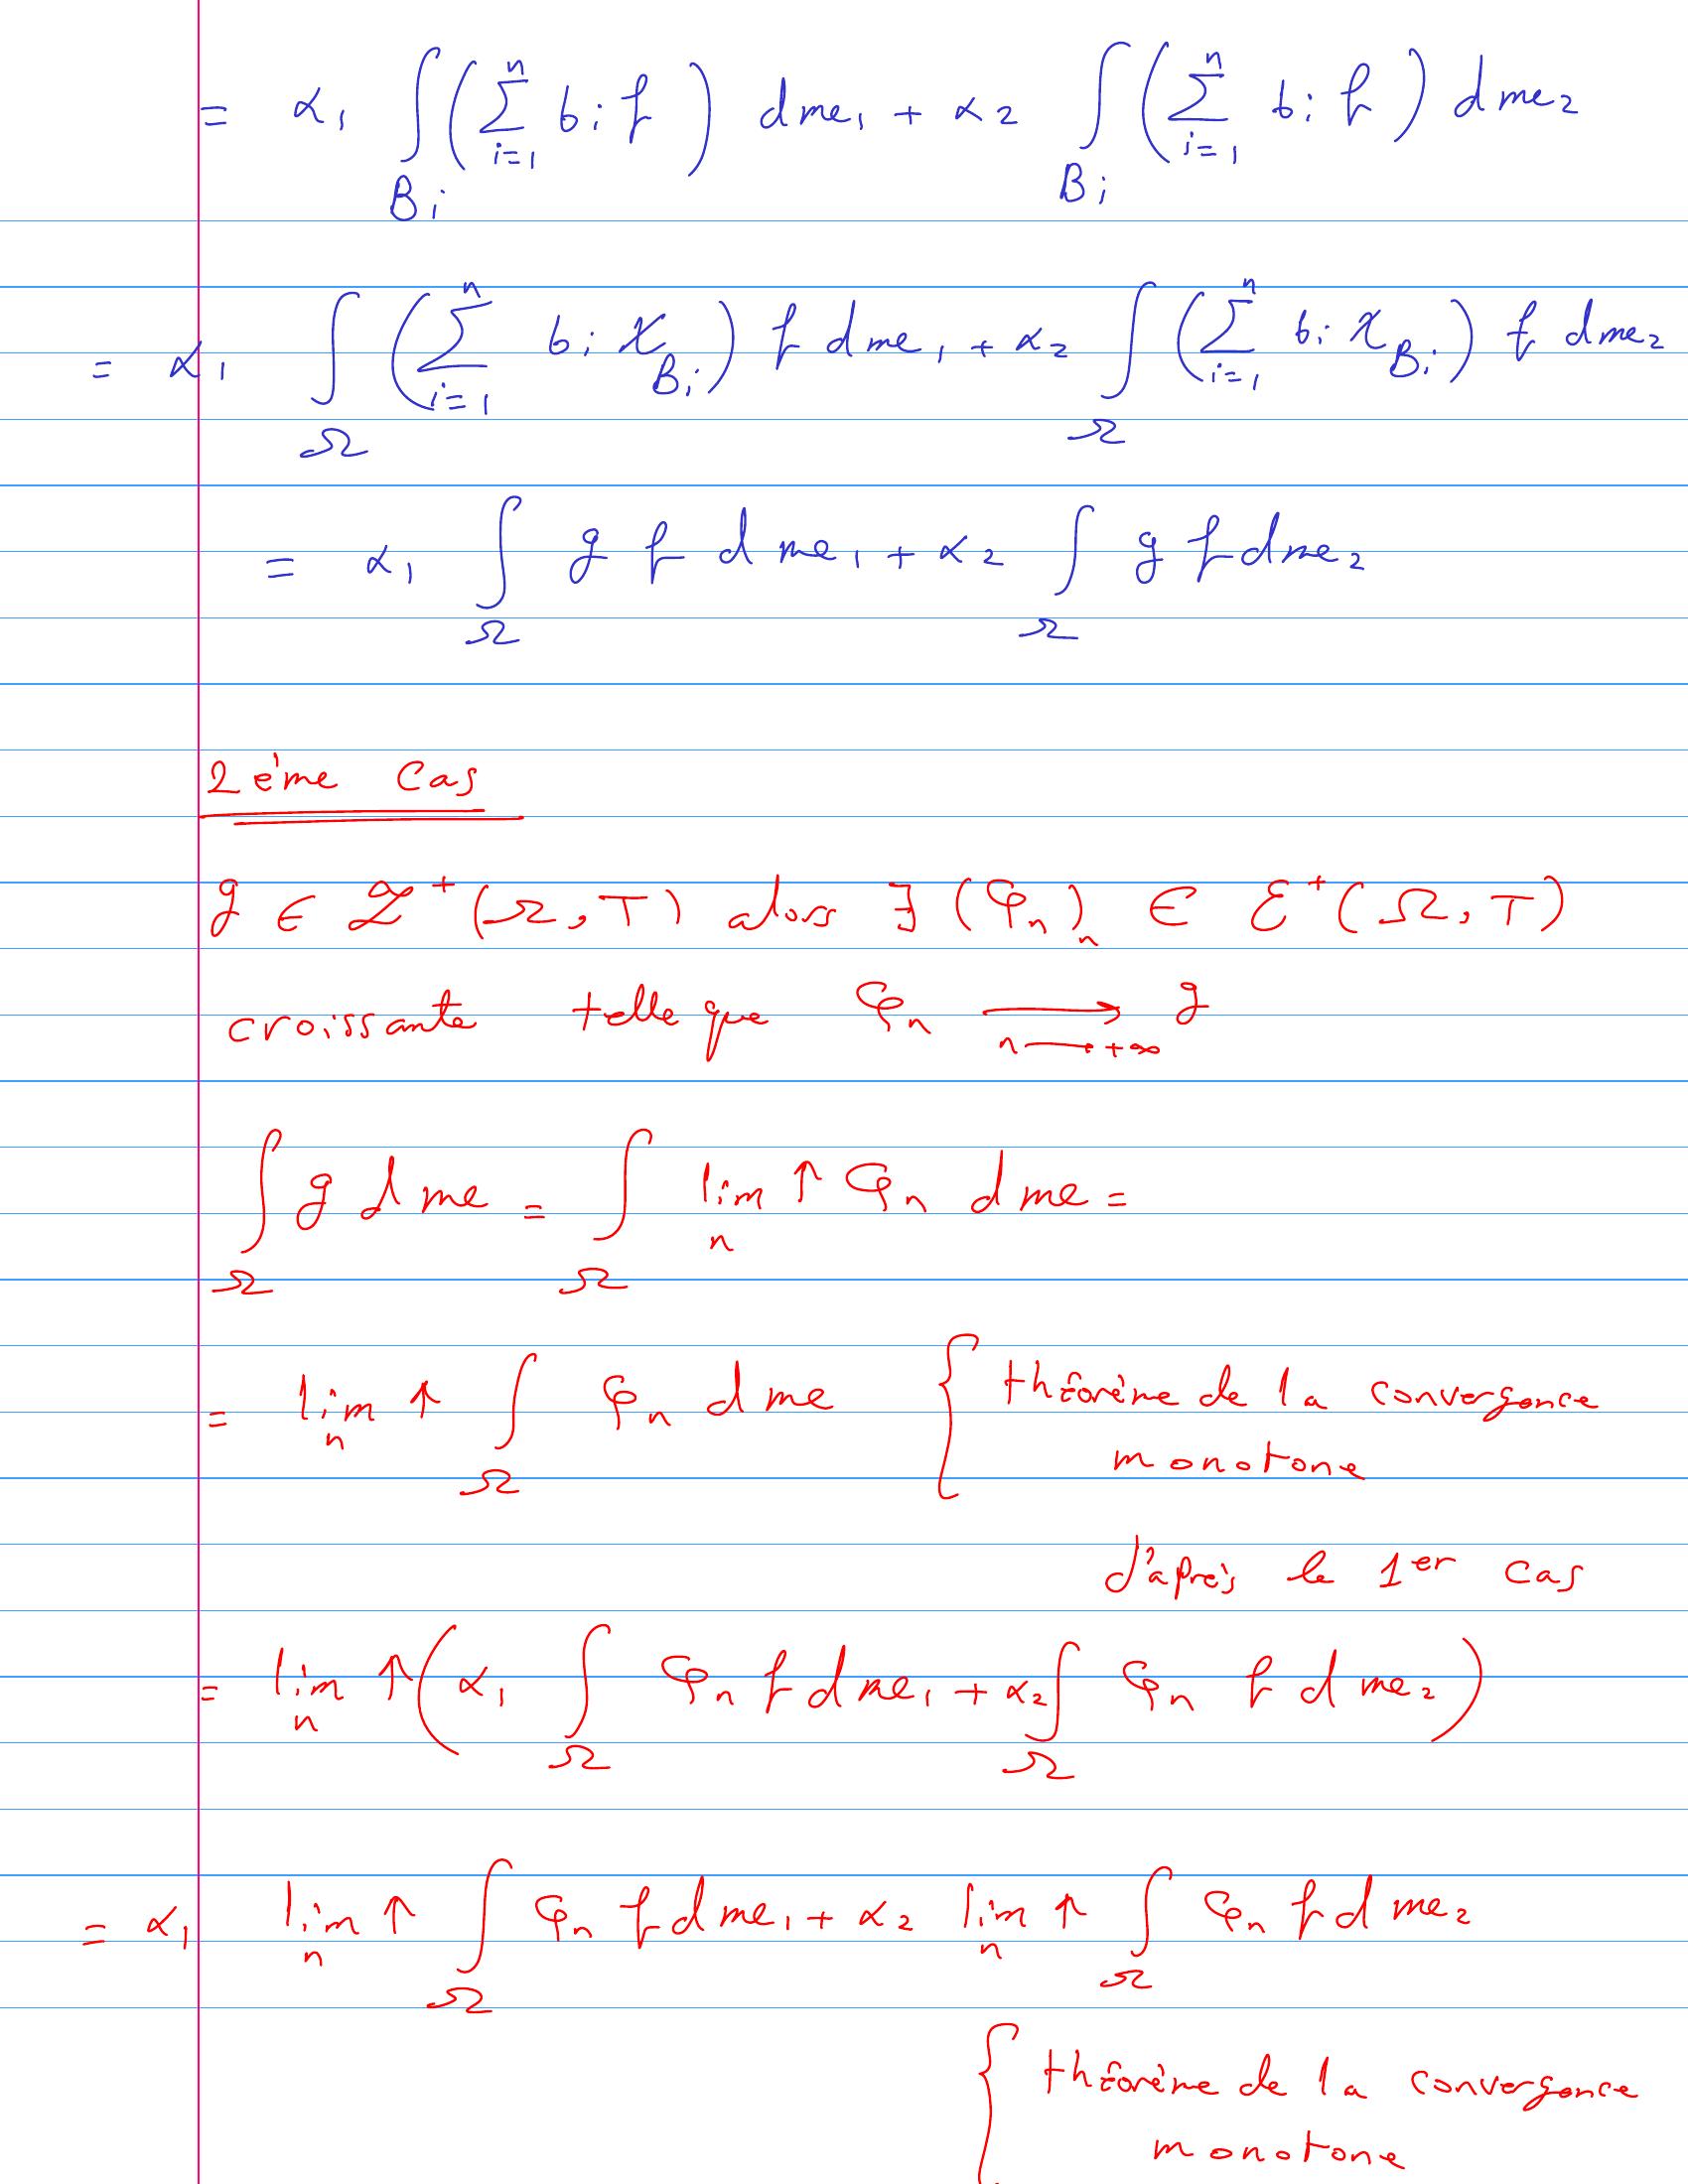 = α₁ ∫_{Bi} ( Σ_{i=1}^{n} bi f ) dme₁ + α₂ ∫_{Bi} ( Σ_{i=1}^{n} bi f ) dme₂
= α₁ ∫_Ω ( Σ_{i=1}^{n} bi χ_{Bi} ) f dme₁ + α₂ ∫_Ω ( Σ_{i=1}^{n} bi χ_{Bi} ) f dme₂
= α₁ ∫_Ω g f dme₁ + α₂ ∫_Ω g f dme₂
2ème Cas
g ∈ ℒ⁺(Ω, T) alors ∃ (φn)n ∈ ℰ⁺(Ω, T)
croissante telle que φn ⟶_{n⟶+∞} g
∫_Ω g dme = ∫_Ω lim_n ↑ φn dme =
= lim_n ↑ ∫_Ω φn dme { théorème de la convergence
monotone
d'après le 1er cas
= lim_n ↑ ( α₁ ∫_Ω φn f dme₁ + α₂ ∫_Ω φn f dme₂ )
= α₁ lim_n ↑ ∫_Ω φn f dme₁ + α₂ lim_n ↑ ∫_Ω φn f dme₂
{ théorème de la convergence
monotone